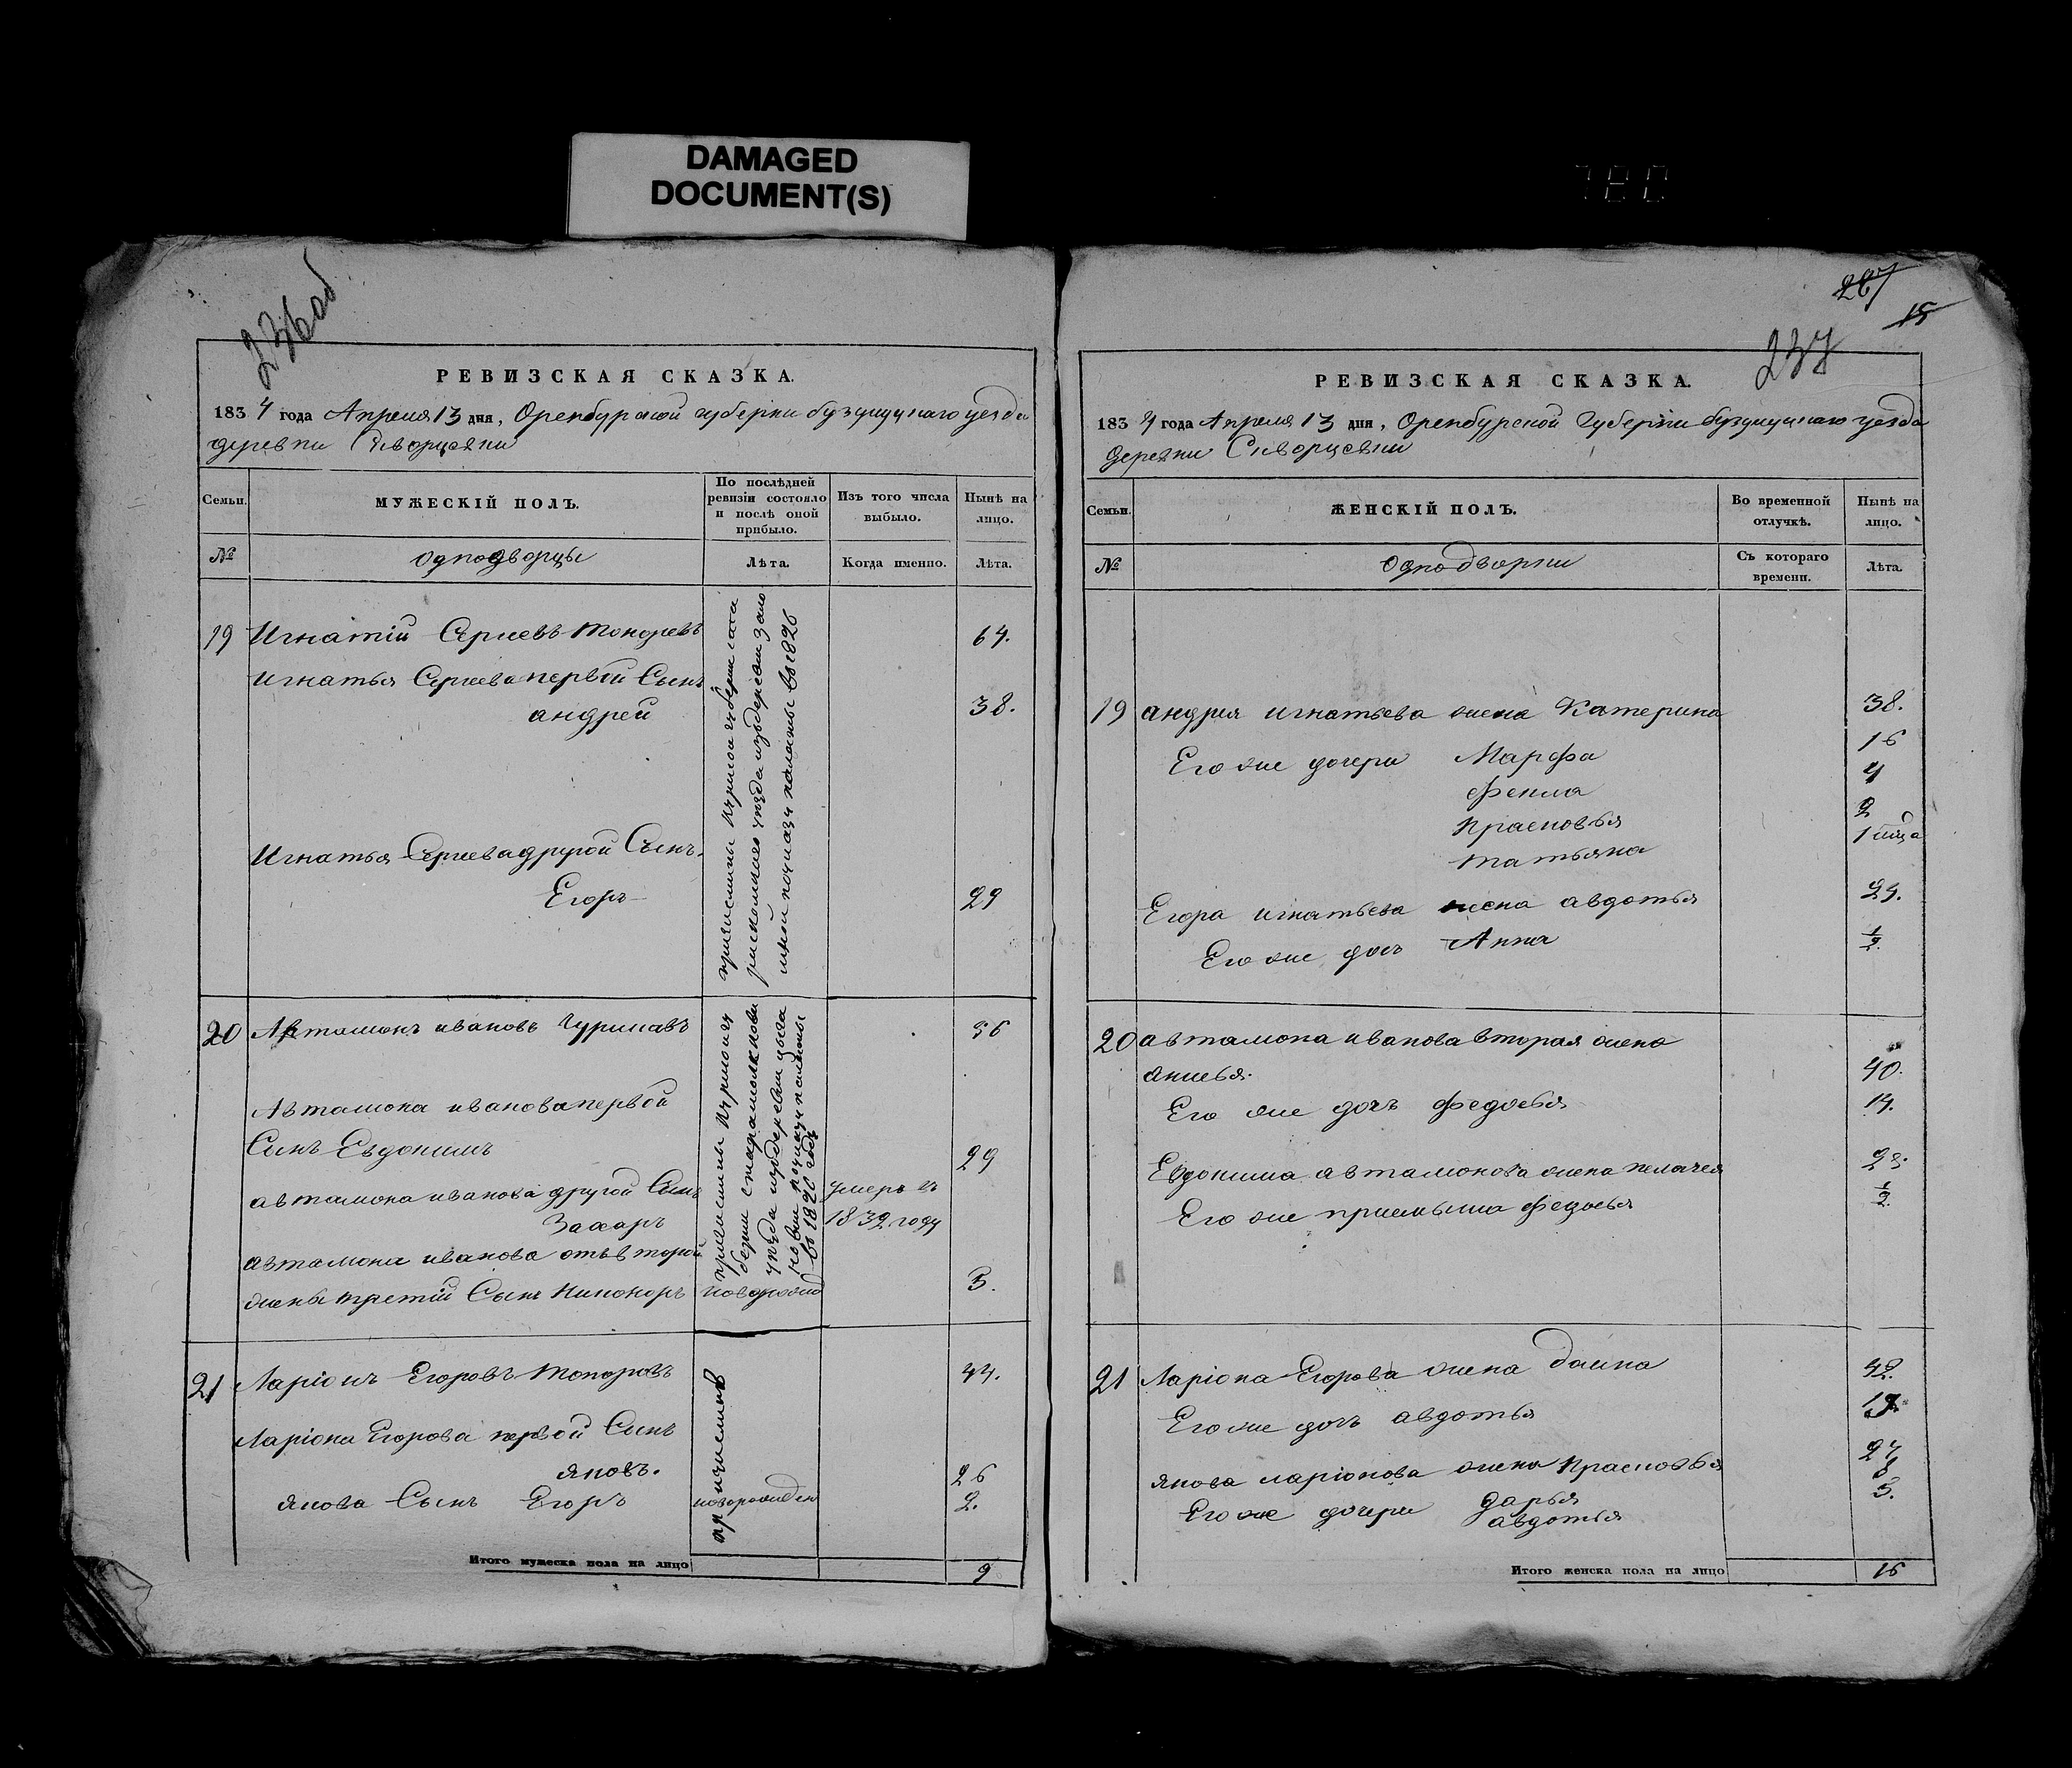 DAMAGED
DOCUMENT(S)
236 об
РЕВИЗСКАЯ СКАЗКА.
1834 года Апреля 13 дня, Оренбургской губернии бузулуцкаго уезда
деревни Скворцевки
Семьи.
МУЖЕСКІЙ ПОЛЪ.
По послѣдней
ревизіи состояло
и послѣ оной
прибыло.
Изъ того числа
выбыло.
Нынѣ на
лицо.
№
однодворцы
Лѣта.
Когда именно.
Лѣта.
19 Игнатій Сергеевъ 64.
Игнатья Сергеева первой Сынъ
андрей 38.
Игнатья Сергеева другой Сынъ.
Егоръ 29
причислины
во 1826
20 Автамонъ ивановъ 56
Автамона иванова первой
Сынъ Евдокимъ 29
автамона иванова другой Сынъ умеръ въ
Захаръ 1832 году
автамона иванова отъ второй
жены третій Сынъ Никоноръ новорожд 3.
причислины
уезда из деревни
21 Ларіонъ Егоровъ Топоровъ 44.
Ларіона Егорова первой Сынъ
яковъ. 26
якова Сынъ Егоръ новорожден 2.
причислинъ
Итого мужеска пола на лицо 9
267
15
237
РЕВИЗСКАЯ СКАЗКА.
1834 года Апреля 13 дня, Оренбурской Губерніи бузулуцкаго уезда
деревни Скворцевки
Семьи.
ЖЕНСКІЙ ПОЛЪ.
Во временной
отлучкѣ.
Нынѣ на
лицо.
№
однодворки
Съ котораго
времени.
Лѣта.
19 андрея игнатьева жена Катерина 38.
Его же дочери Марфа 16
Фекла 4
Прасковья 2
татьяна
Егора игнатьева жена авдотья
Его же дочь Анна ½.
20 автамона иванова вторая жена
анисья. 40.
Его же дочь федосья 14.
Евдокима автамонова жена пелагея
Его же приемыша федосья ½.
21 Ларіона Егорова жена 42.
Его же дочь авдотья
якова ларіонова жена Прасковья 27
Его же дочери дарья
авдотья 3.
Итого женска пола на лицо 16